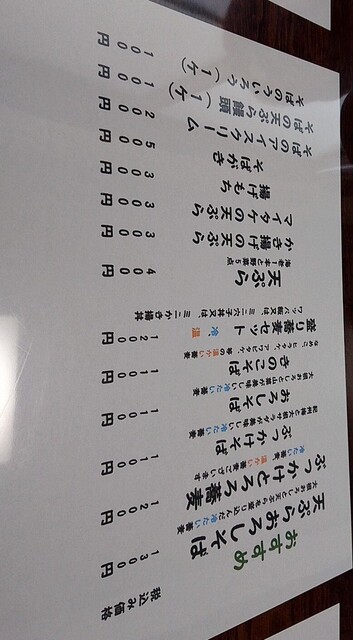 おすすめ 税込み価格
天ぷらおろしそば 1300円
大根おろしに天ぷらを盛り込んだ冷たい蕎麦
ぶっかけとろろ蕎麦 1200円
冷たい蕎麦 温かい蕎麦ございます
ぶっかけそば 1100円
大根サラダが美味しい冷たい蕎麦
おろしそば 1100円
大根おろしと山菜が美味しい冷たい蕎麦
きのこそば 1100円
なめこ、ヒラタケ、アワビタケ、等の温かい蕎麦
盛り蕎麦セット 冷、温 1200円
ワッパ飯又は、ミニ 又は、ミニかき揚丼
天ぷら 400円
海老1本と野菜5点
かき揚げ天ぷら 300円
マイタケの天ぷら 300円
揚げもち 300円
そばがき 500円
そばのアイスクリーム 200円
そばの天ぷら饅頭(1ケ) 100円
そばのういろう(1ケ) 100円